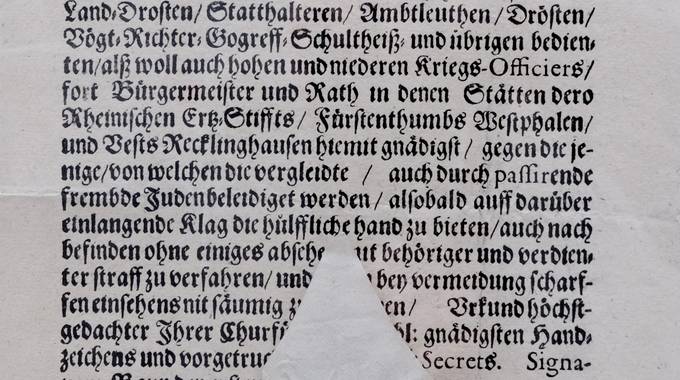 Land-Drosten/ Statthalteren/ Ambtleuthen/ Drösten/
Vögt-Richter-Gogreff-Schultheiß- und übrigen bedien-
ten/alß woll auch hohen und niederen Kriegs-Officiers/
fort Bürgermeister und Rath in denen Stätten dero
Rheinischen Ertz-Stiffts/ Fürstenthumbs Westphalen/
und Vests Recklinghausen hiemit gnädigst/ gegen die je-
nige/von welchen die vergleidte / auch durch passirende
frembde Juden beleidiget werden/ alsobald auff darüber
einlangende Klag die hülffliche hand zu bieten/auch nach
befinden ohne einiges absche mit behöriger und verdien-
ter straff zu verfahren/ und bey vermeidung scharf-
fen einsehens nit säumig Urkund höchst-
gedachter Ihrer gnädigsten Hand-
zeichens und Secrets. Signa-